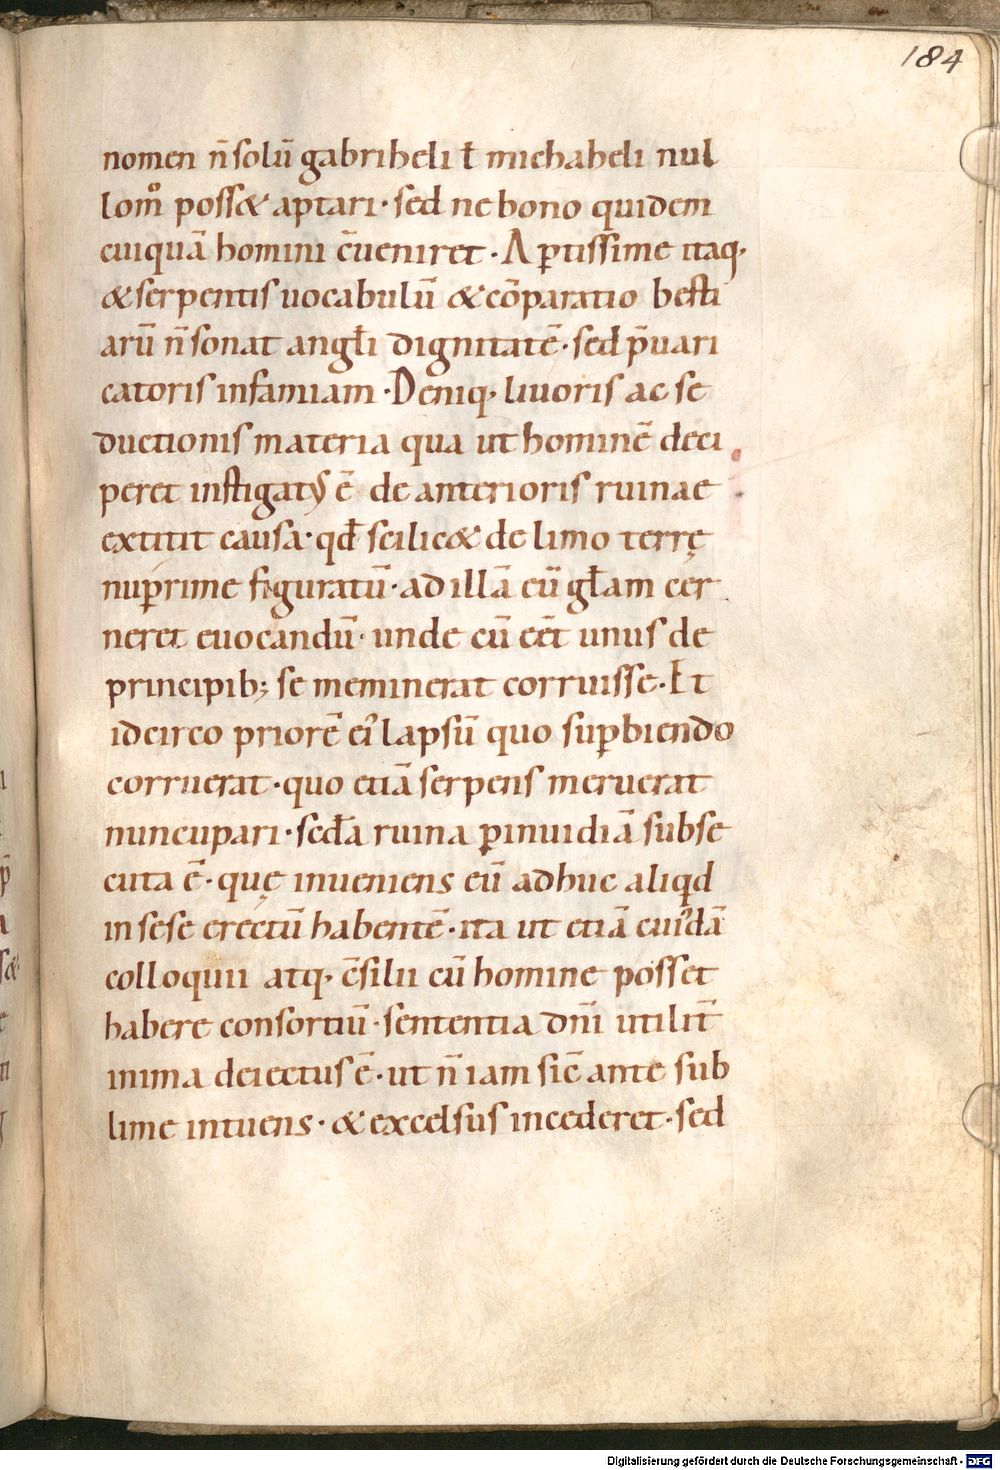 184
nomen n̄ solū gabriheli ł michaheli nul
lom̊ poss& aptari · sed ne bono quidem
cuiquā homini c̄ueniret · Aptissime itaq·
& serpentis uocabulū & cōparatio besti
arū n̄ sonat angłi dignitatē · sed p̄uari
catoris infamiam · Deniq· liuoris ac se
ductionis materia qua ut hominē deci
peret instigatꝰ ē de anterioris ruinae
extitit causa · qđ scilic& de limo terrę
nuꝑrime figuratū · ad illā eū głam cer
neret euocandū · unde cū eēt unus de
principib; se meminerat corruisse · Et
idcirco priorē ei᾿ lapsū quo suꝑbiendo
corruerat · quo etiā serpens meruerat
nuncupari · secđa ruina ꝑ inuidiā subse
cuta ē · quę inueniens eū adhuc aliqd
in sese erectū habentē · ita ut etiā cuidā
colloquii atq· c̄silii cū homine posset
habere consortiū · sententia dn̄i utilit̄
inima deiectus ē · ut n̄ iam sic̄ ante sub
lime intuens · & excelsus incederet · sed
Digitalisierung gefördert durch die Deutsche Forschungsgemeinschaft - DFG